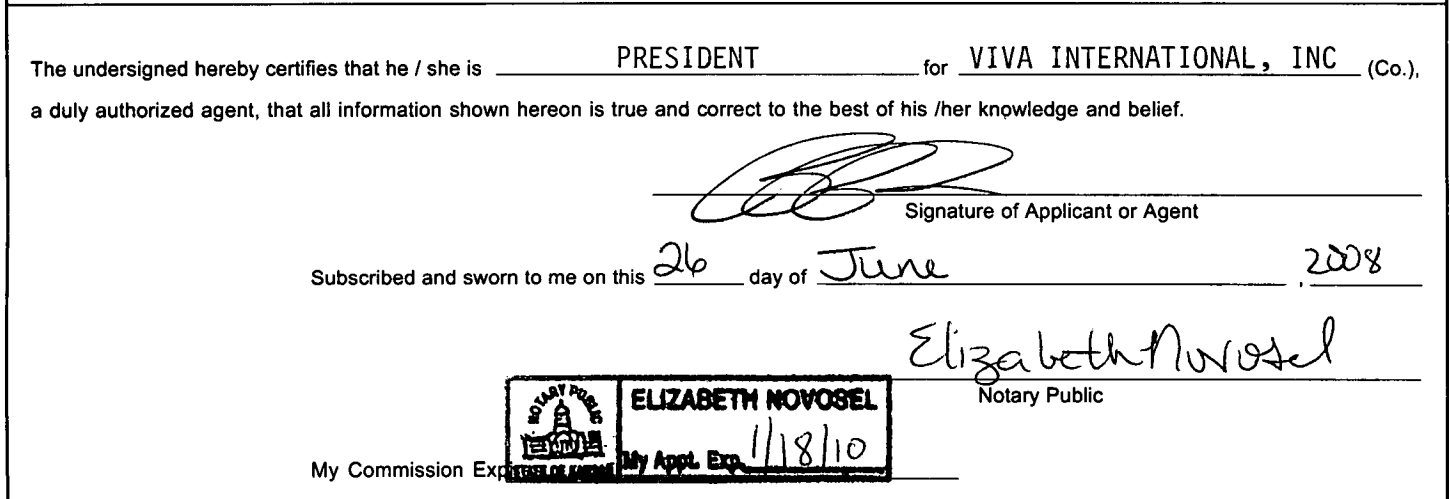 The undersigned hereby certifies that he / she is PRESIDENT for VIVA INTERNATIONAL, INC (Co.),
a duly authorized agent, that all information shown hereon is true and correct to the best of his /her knowledge and belief.
Signature of Applicant or Agent
Subscribed and sworn to me on this 26 day of June, 2008
Elizabeth Novosel
Notary Public
NOTARY PUBLIC
STATE OF KANSAS
ELIZABETH NOVOSEL
My Appt. Exp. 1/18/10
My Commission Exp